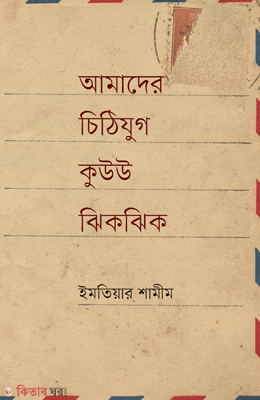 আমাদের
চিঠিযুগ
কুউউ
ঝিকঝিক
ইমতিয়ার শামীম
কিতাব ঘর